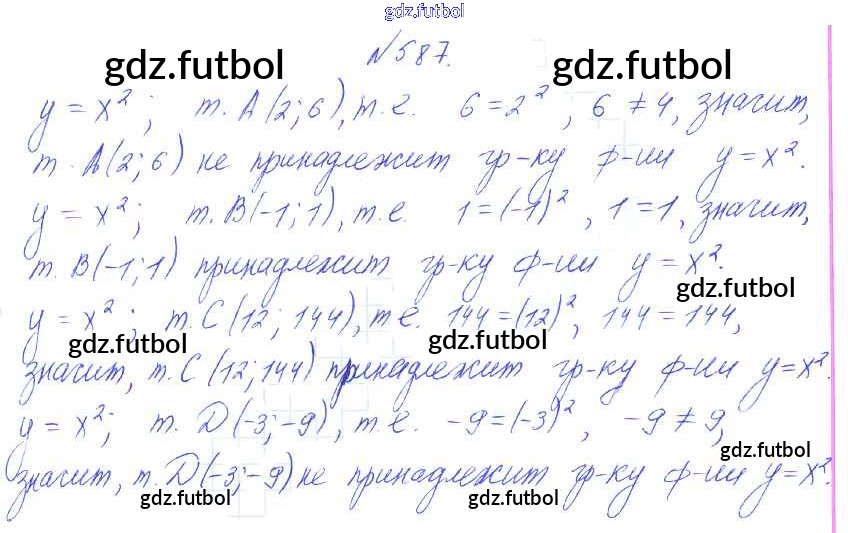 gdz.futbol
№587.
gdz.futbol gdz.futbol
y = x²; т. A(2; 6), т.е. 6 = 2², 6 ≠ 4, значит,
т. A(2; 6) не принадлежит гр-ку ф-ии y = x².
y = x²; т. B(-1; 1), т.е. 1 = (-1)², 1 = 1, значит,
т. B(-1; 1) принадлежит гр-ку ф-ии y = x².
gdz.futbol
y = x²; т. C(12; 144), т.е. 144 = (12)², 144 = 144,
gdz.futbol gdz.futbol
значит, т. C(12; 144) принадлежит гр-ку ф-ии y = x².
y = x²; т. D(-3; -9), т.е. -9 = (-3)², -9 ≠ 9,
gdz.futbol
значит, т. D(-3; -9) не принадлежит гр-ку ф-ии y = x².
gdz.futbol gdz.futbol